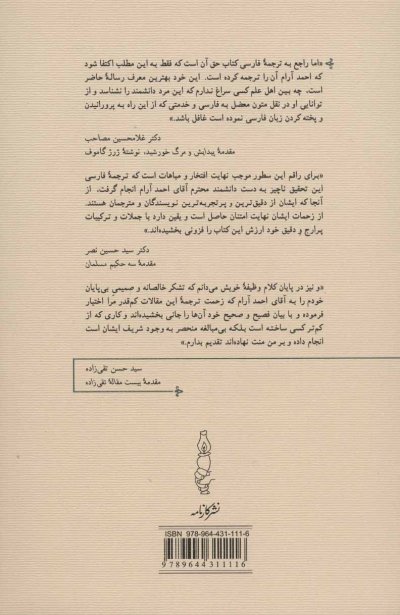 «اما راجع به ترجمهٔ فارسی کتاب حق آن است که فقط به این مطلب اکتفا شود
که احمد آرام آن را ترجمه کرده است. این خود بهترین معرف رسالهٔ حاضر
است، چه بین اهل علم کسی سراغ ندارم که این مرد دانشمند را نشناسد و از
توانایی او در نقل متون معضل به فارسی و خدمتی که از این راه به پرورانیدن
و پخته کردن زبان فارسی نموده است غافل باشد.»
دکتر غلامحسین مصاحب
مقدمهٔ پیدایش و مرگ خورشید، نوشتهٔ ژرژ گاموف
«برای راقم این سطور موجب نهایت افتخار و مباهات است که ترجمهٔ فارسی
این تحقیق ناچیز به دست دانشمند محترم آقای احمد آرام انجام گرفت. از
آنجا که ایشان از دقیق‌ترین و پرتجربه‌ترین نویسندگان و مترجمان هستند.
از زحمات ایشان نهایت امتنان حاصل است و یقین دارد با جملات و ترکیبات
پرارج و دقیق خود ارزش این کتاب را فزونی بخشیده‌اند.»
دکتر سید حسین نصر
مقدمهٔ سه حکیم مسلمان
«و نیز در پایان کلام وظیفهٔ خویش می‌دانم که تشکر خالصانه و صمیمی بی‌پایان
خودم را به آقای احمد آرام که زحمت ترجمهٔ این مقالات کم‌قدر مرا اختیار
فرموده و با بیان فصیح و صحیح خود آن‌ها را جانی بخشیده‌اند و کاری که از
کم‌تر کسی ساخته است بلکه بی‌مبالغه منحصر به وجود شریف ایشان است
انجام داده و بر من منت نهاده‌اند تقدیم بدارم.»
سید حسن تقی‌زاده
مقدمهٔ بیست مقالهٔ تقی‌زاده
نشر کارنامه
ISBN 978-964-431-111-6
9789644311116